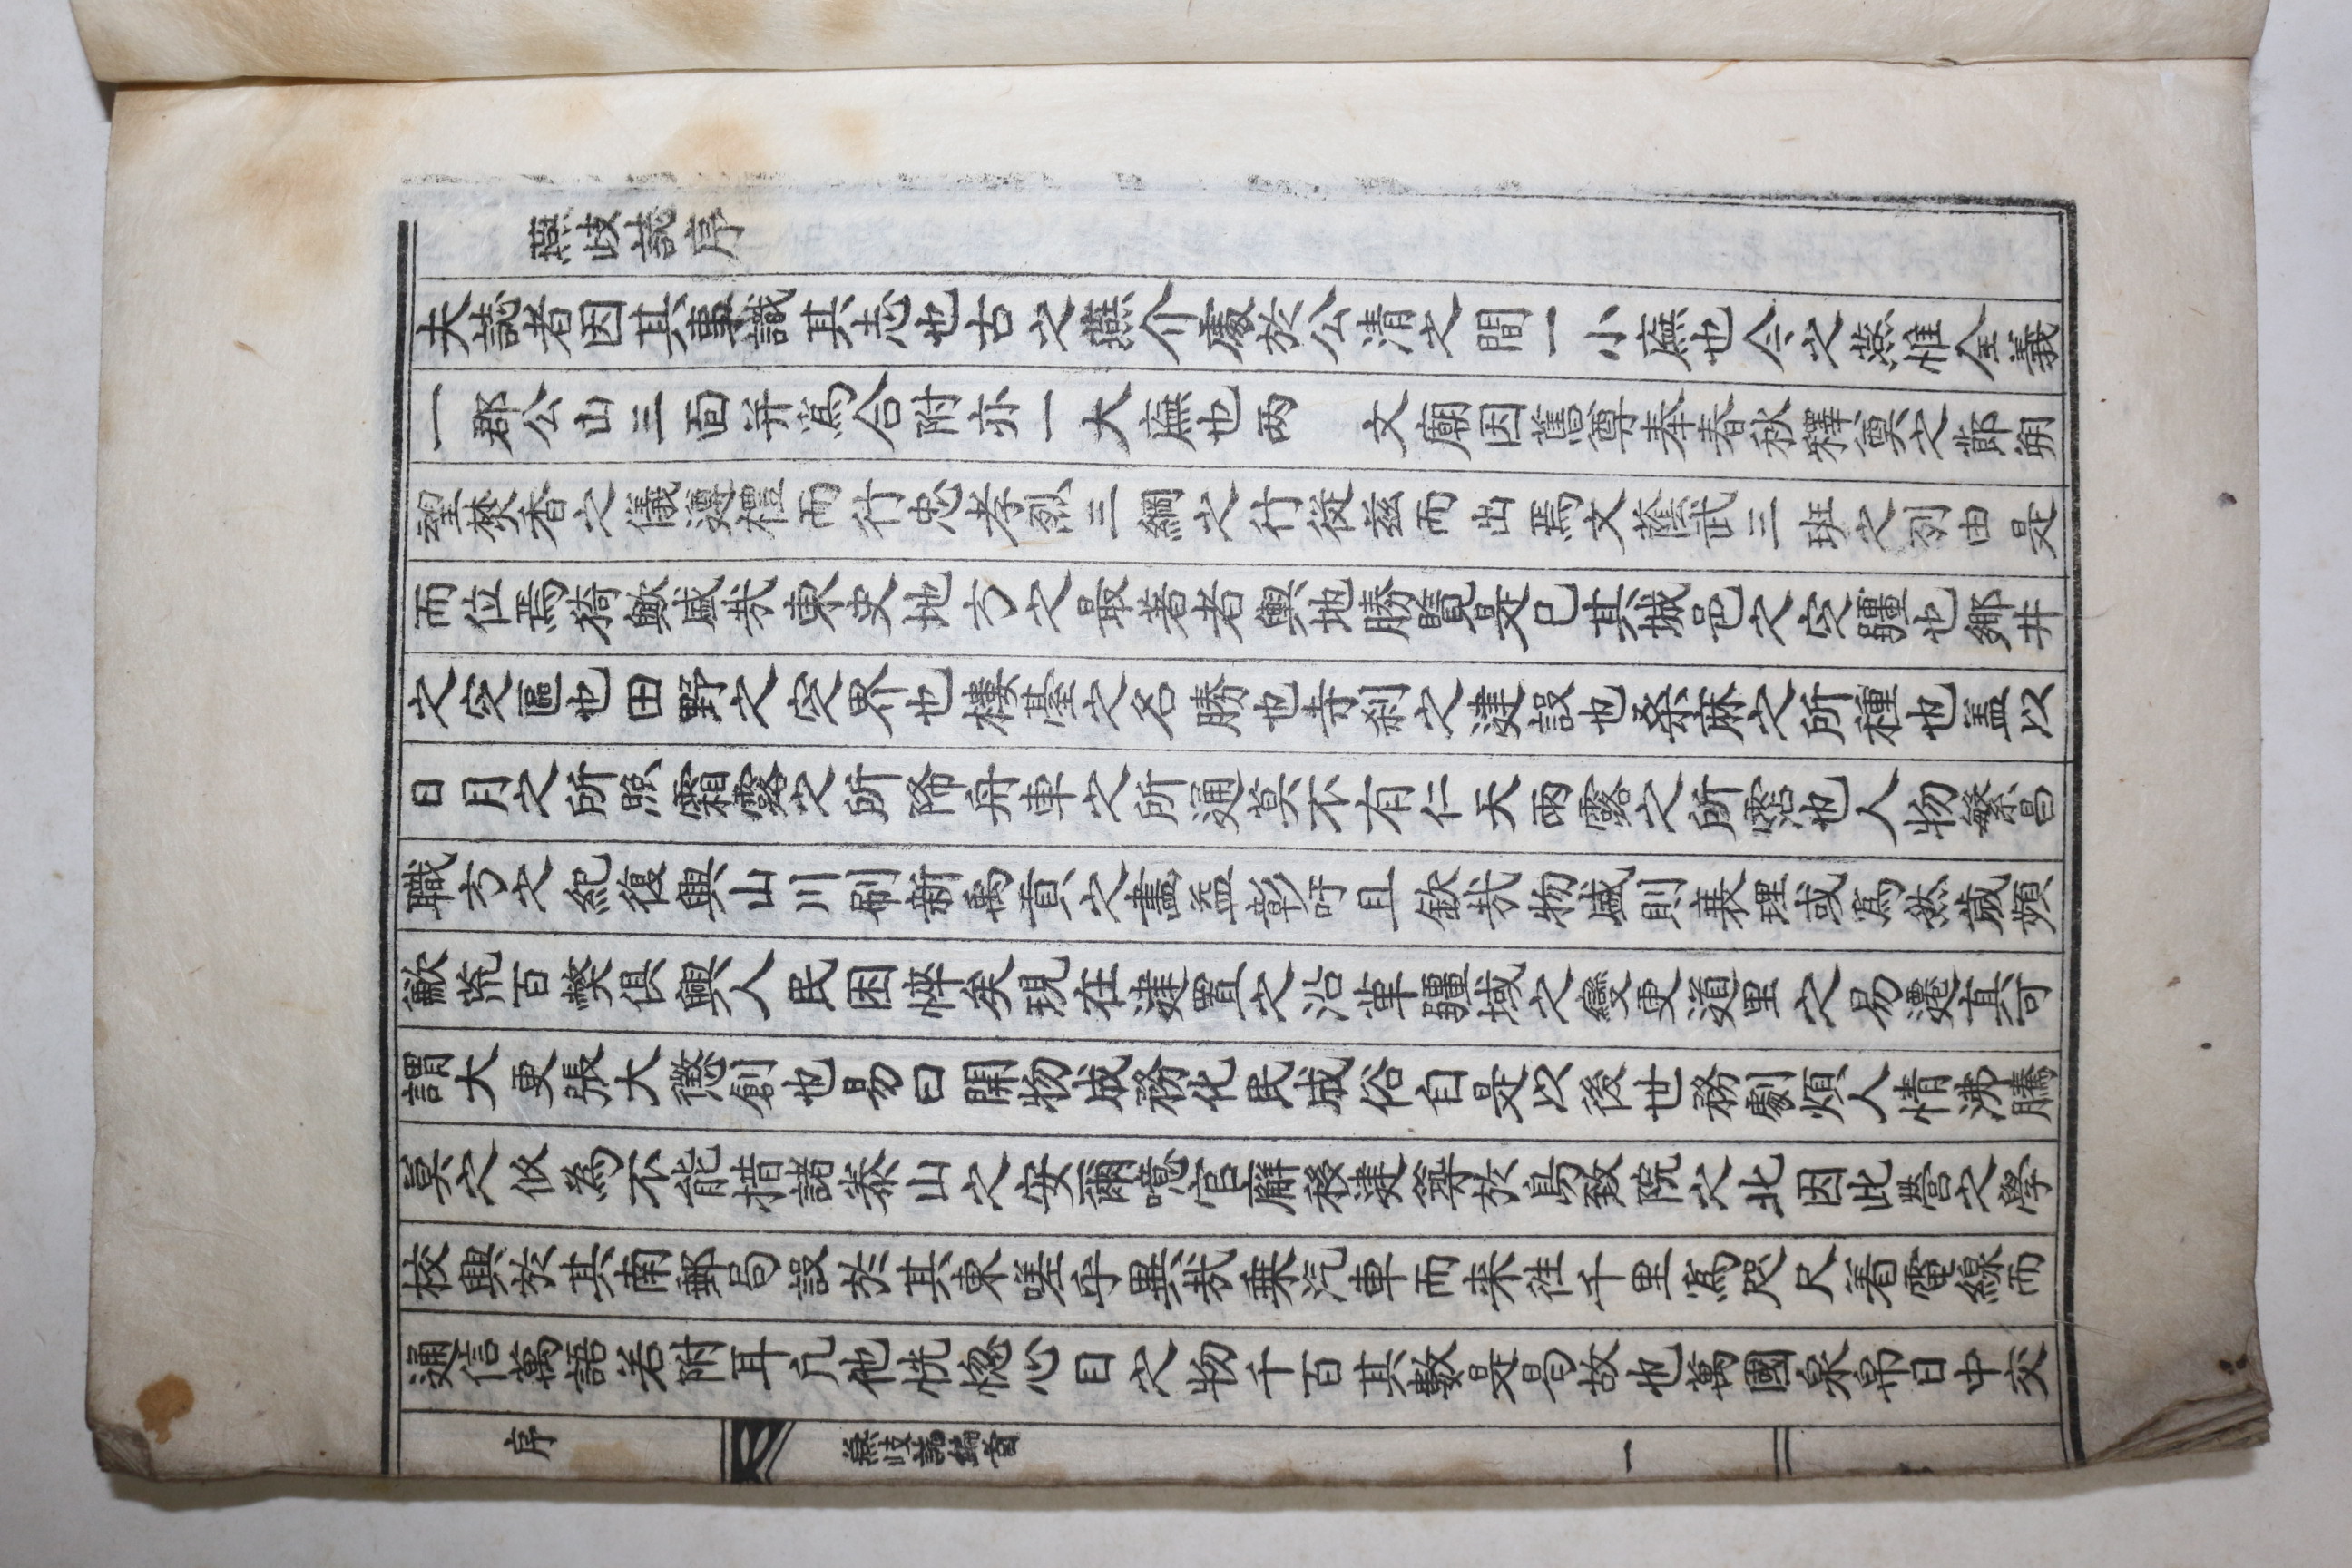 燕歧誌序
夫誌者因其事識其志也古之燕介處於公清之間一小廡也今之燕惟全義
一郡公山三面并爲合附亦一大廡也两 文廟因舊尊奉春秋釋奠之節朔
望焚香之儀遵禮而行忠孝烈三綱之行從兹而出焉文蔭武三班之列由是
而位焉猗歟盛㢤東史地方之最著者輿地勝覽是已其城邑之定疆也鄉井
之定區也田野之定界也樓臺之名勝也寺刹之建設也桑麻之所種也盖以
日月之所照霜露之所降舟車之所通莫不有仁天雨露之所霑也人物繁昌
職方之紀復興山川刷新禹貢之盡益彰吁且欽㢤物盛則衰理或爲然歲頻
歉荒百弊俱興人民困悴矣現在建置之沿革疆域之變更道里之易遷真可
謂大更張大懲創也易曰開物成務化民成俗自是以後世務劇煩人情沸騰
莫之攸為不能措諸泰山之安爾噫官廨移建築於鳥致院之北因此營之學
校興於其南郵局設於其東嗟乎異㢤乗汽車而来徃千里爲咫尺着電線而
通信萬語若附耳凢他恍惚心目之物千百其數是曷故也萬國泉帛日中交
序
燕歧誌編首
一